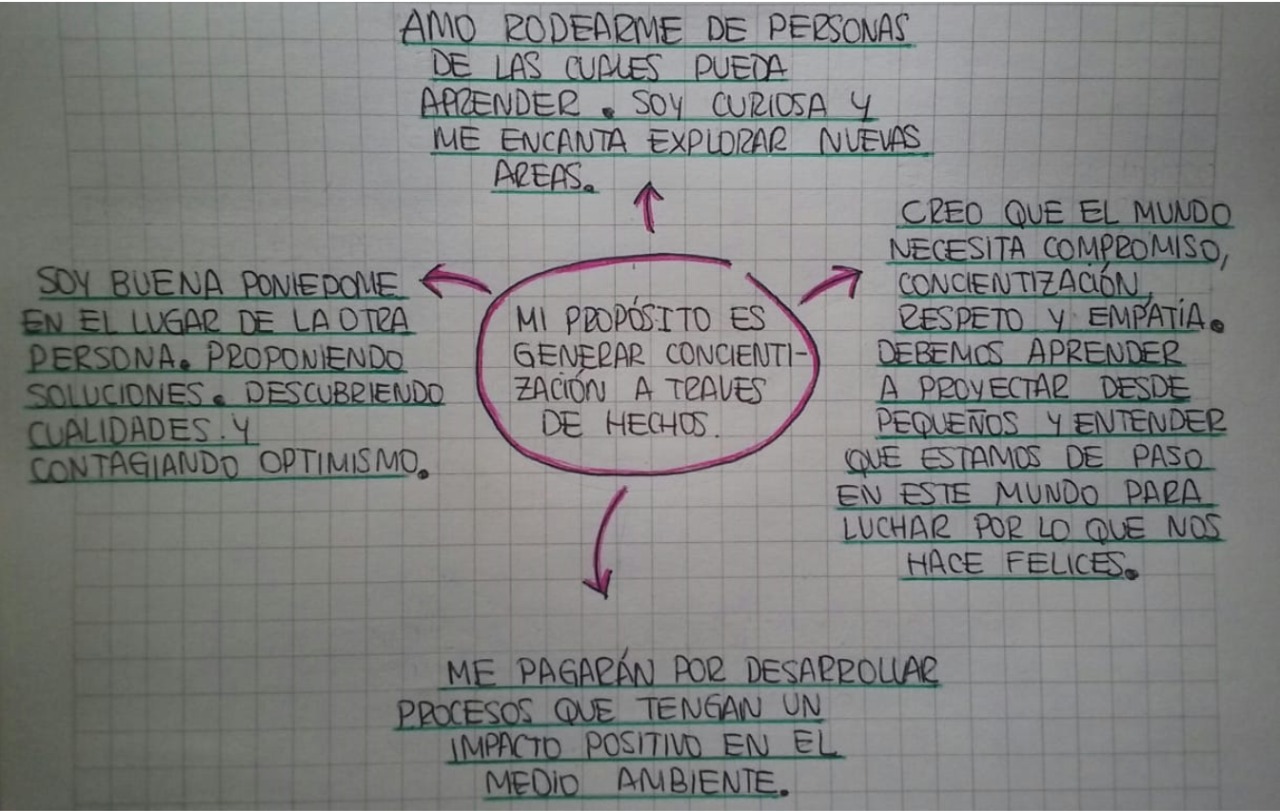 AMO RODEARME DE PERSONAS
DE LAS CUALES PUEDA
APRENDER. SOY CURIOSA Y
ME ENCANTA EXPLORAR NUEVAS
AREAS.
SOY BUENA PONIEDOME
EN EL LUGAR DE LA OTRA
PERSONA. PROPONIENDO
SOLUCIONES. DESCUBRIENDO
CUALIDADES. Y
CONTAGIANDO OPTIMISMO.
MI PROPÓSITO ES
GENERAR CONCIENTI-
ZACIÓN A TRAVES
DE HECHOS.
CREO QUE EL MUNDO
NECESITA COMPROMISO,
CONCIENTIZACIÓN,
RESPETO Y EMPATÍA.
DEBEMOS APRENDER
A PROYECTAR DESDE
PEQUEÑOS Y ENTENDER
QUE ESTAMOS DE PASO
EN ESTE MUNDO PARA
LUCHAR POR LO QUE NOS
HACE FELICES.
ME PAGARÁN POR DESARROLLAR
PROCESOS QUE TENGAN UN
IMPACTO POSITIVO EN EL
MEDIO AMBIENTE.